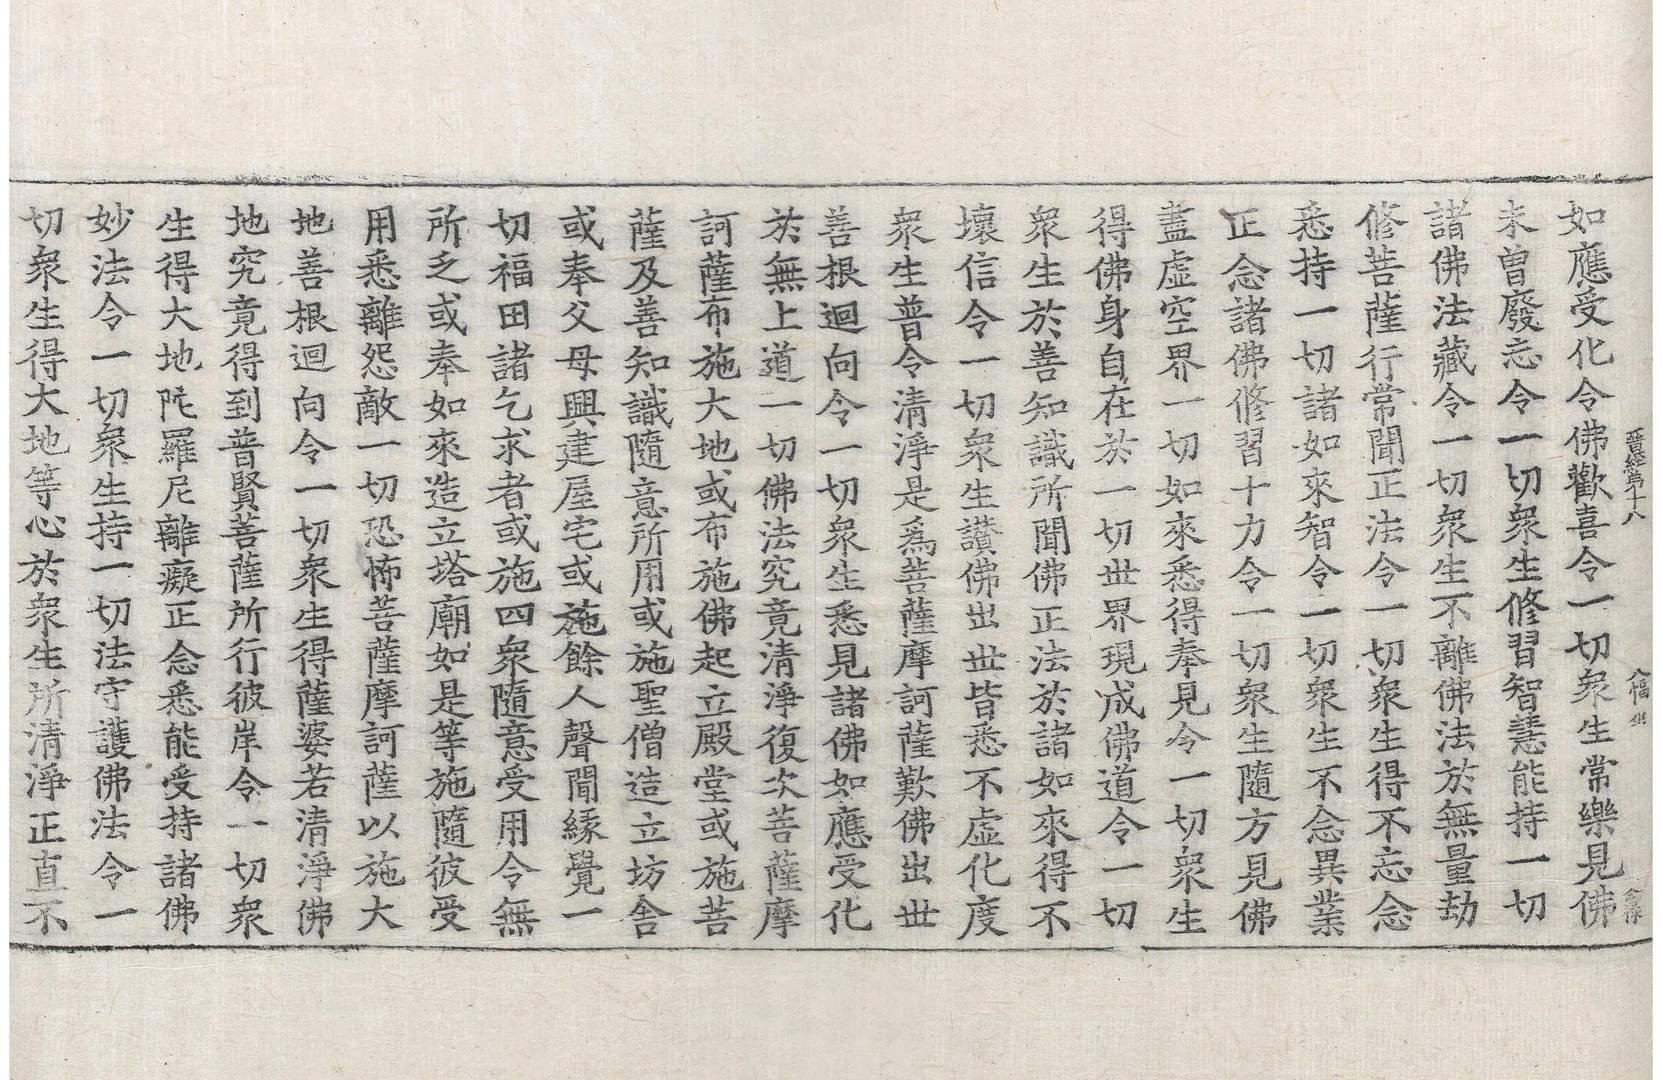 晉經第十八
如應受化令佛歡喜令一切衆生常樂見佛
未曾廢忘令一切衆生修習智慧能持一切
諸佛法藏令一切衆生不離佛法於無量劫
修菩薩行常聞正法令一切衆生得不忘念
悉持一切諸如來智令一切衆生不念異業
正念諸佛修習十力令一切衆生隨方見佛
盡虛空界一切如來悉得奉見令一切衆生
得佛身自在於一切世界現成佛道令一切
衆生於善知識所聞佛正法於諸如來得不
壞信令一切衆生讃佛出世皆悉不虛化度
衆生普令清淨是爲菩薩摩訶薩歎佛出世
善根迴向令一切衆生悉見諸佛如應受化
於無上道一切佛法究竟清淨復次菩薩摩
訶薩布施大地或布施佛起立殿堂或施菩
薩及善知識隨意所用或施聖僧造立坊舍
或奉父母興建屋宅或施餘人聲聞緣覺一
切福田諸乞求者或施四衆隨意受用令無
所乏或奉如來造立塔廟如是等施隨彼受
用悉離怨敵一切恐怖菩薩摩訶薩以施大
地善根迴向令一切衆生得薩婆若清淨佛
地究竟得到普賢菩薩所行彼岸令一切衆
生得大地陀羅尼離癡正念悉能受持諸佛
妙法令一切衆生持一切法守護佛法令一
切衆生得大地等心於衆生所清淨正直不